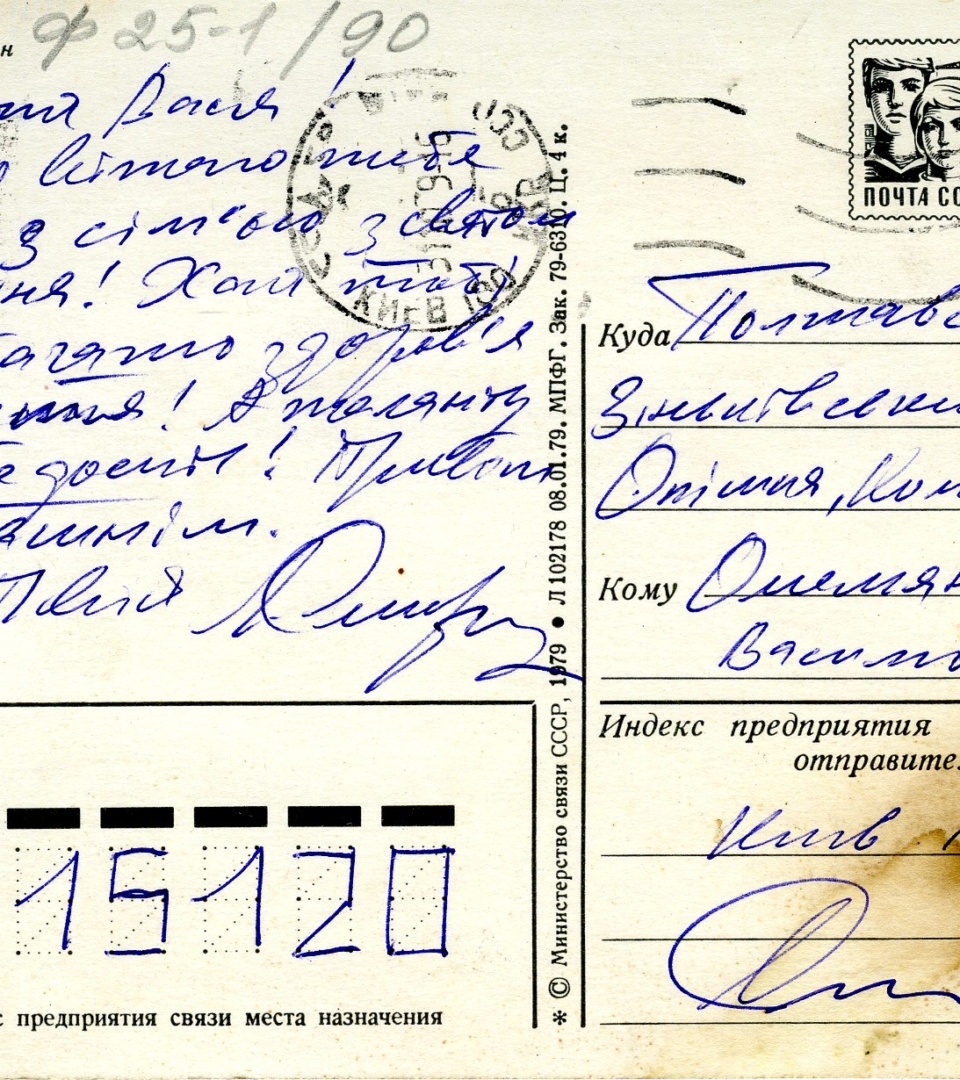 н
Ф 25-1/90
Вася!
вітаю тебе
з сім'єю з святом
ня! Хай тобі
здоров'я
! А таланту
досить! Привіт
Твій
СССР
КИЕВ 100
ПОЧТА СС
Куда Полтавс
Зіньківськ
Опішня,
Кому Омелян
Васил
Индекс предприятия
отправите
Київ
15120
с предприятия связи места назначения
* © Министерство связи СССР, 1979 ● Л 102178 08.01.79. МПФГ. Зак. 79-6310. Ц. 4 к.